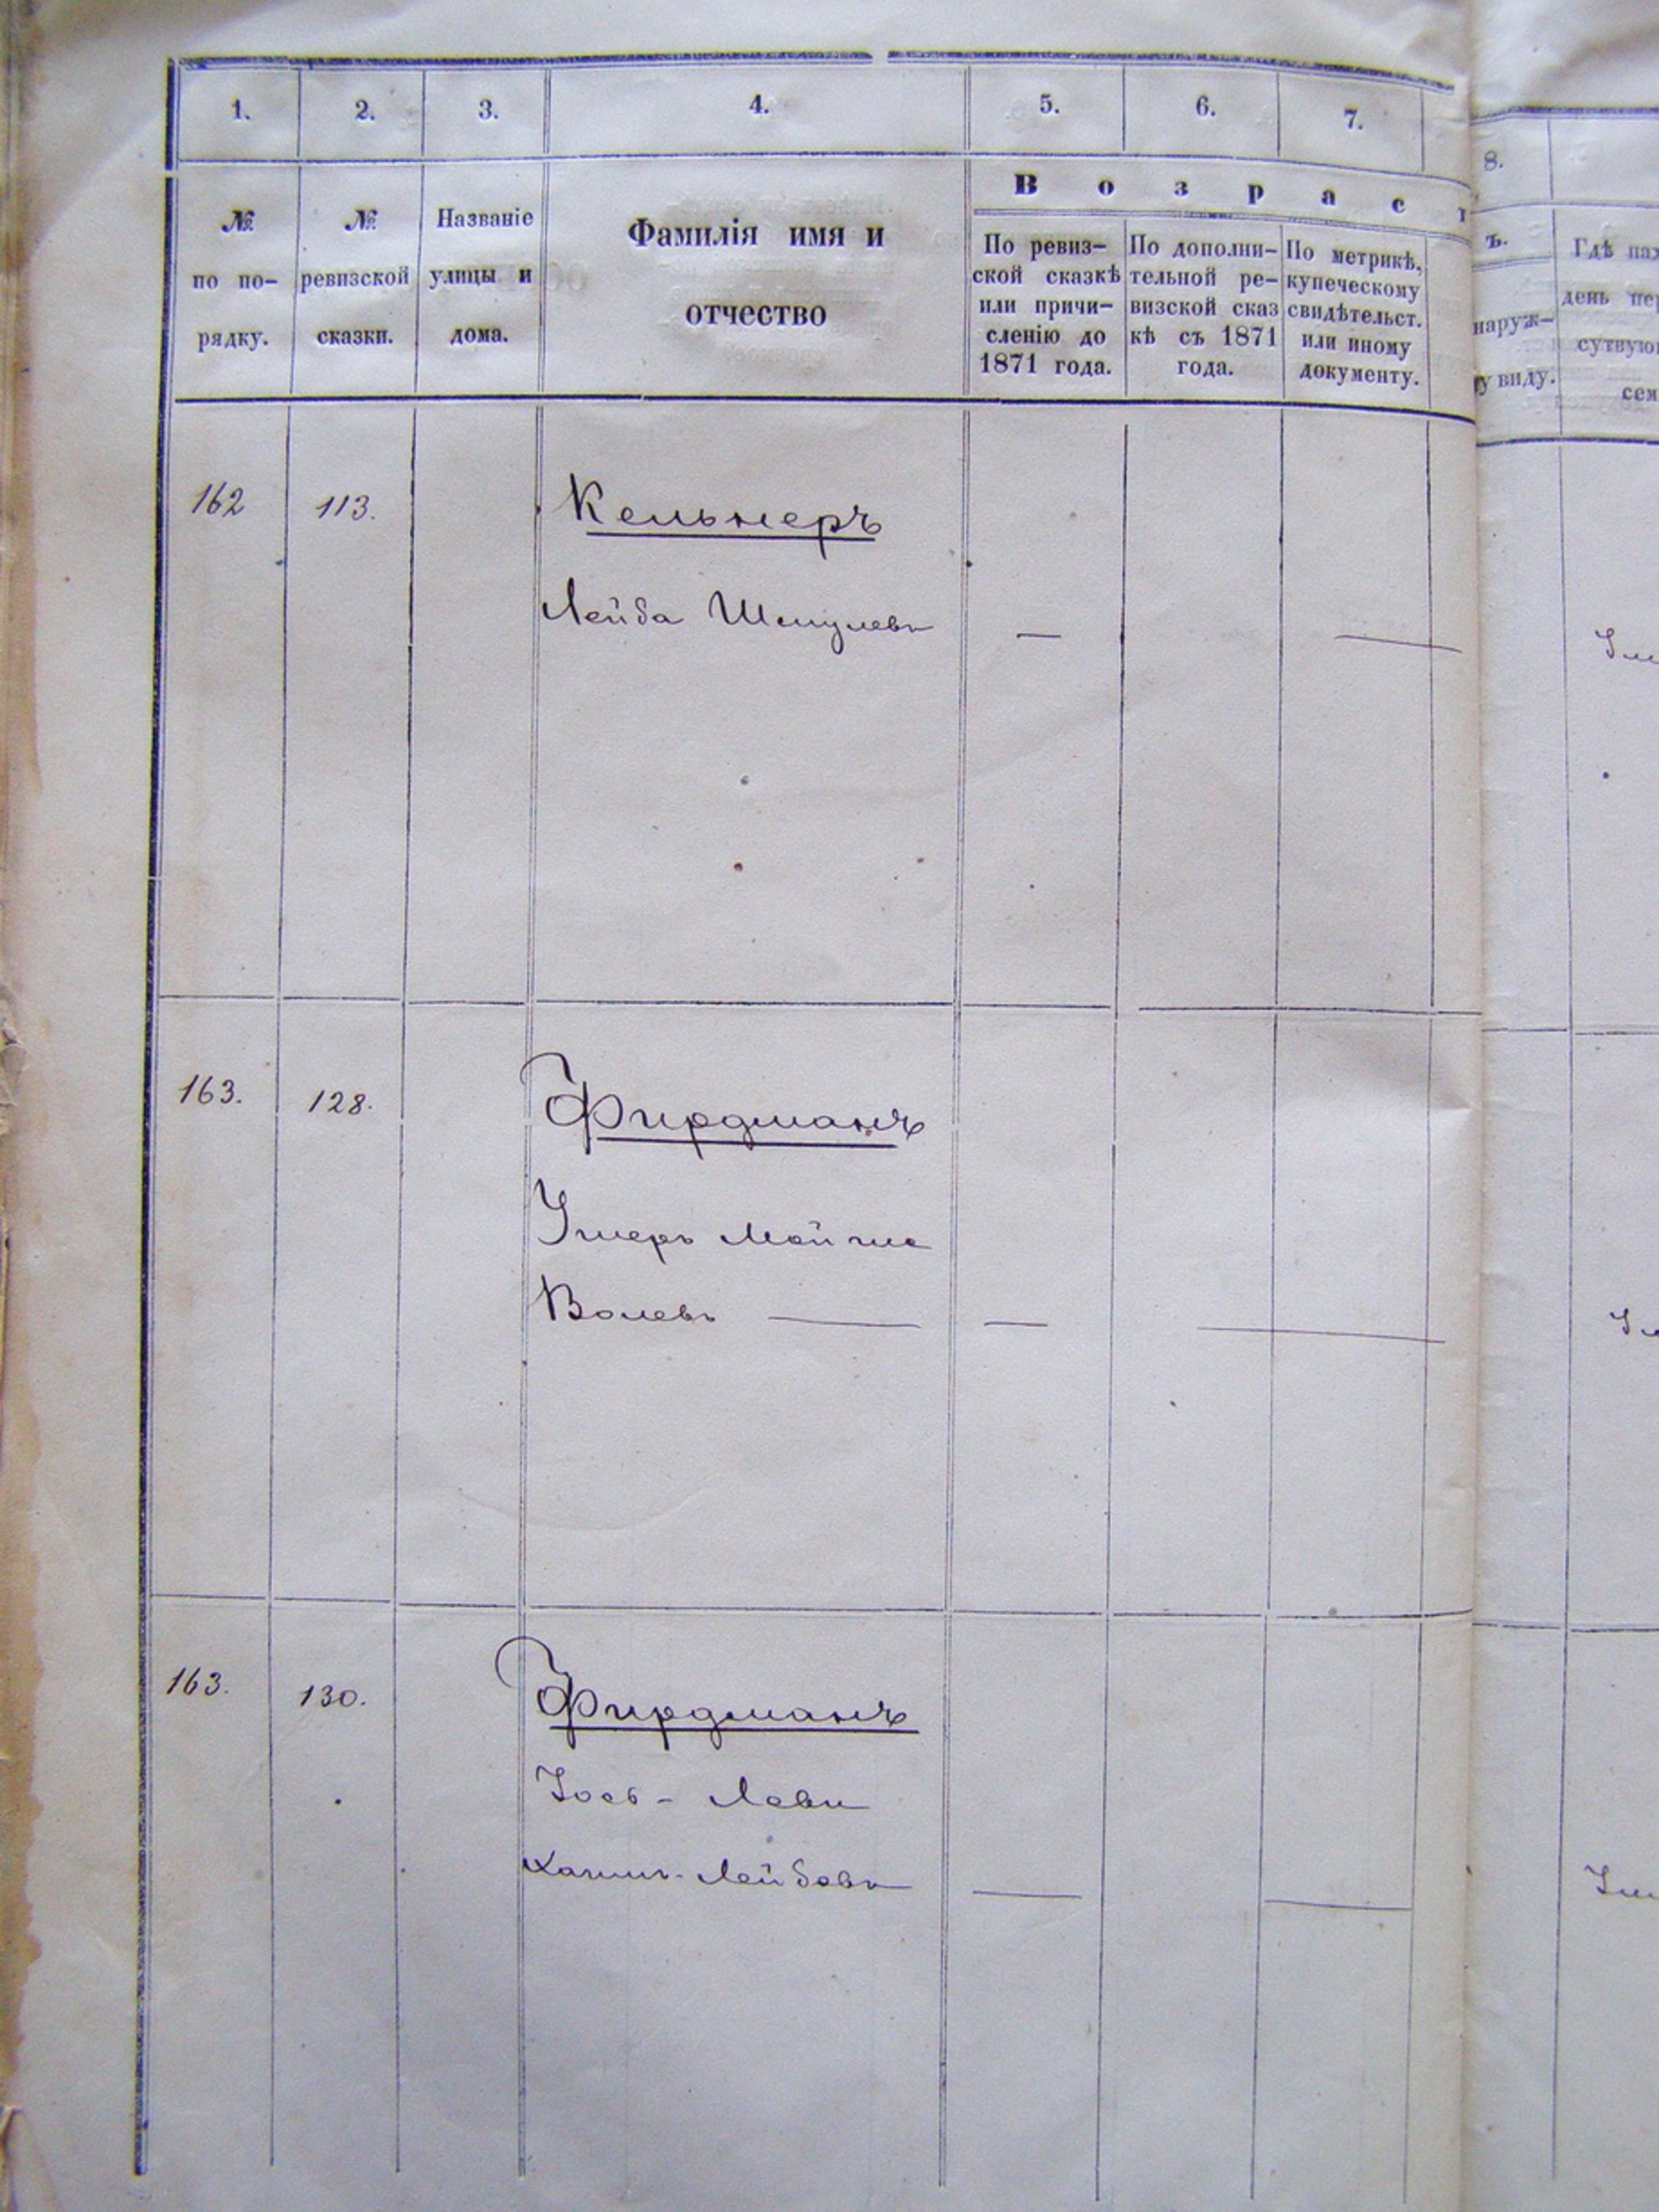 1. 2. 3. 4. 5. 6. 7. 8.
№ по по-рядку.
№ ревизской сказки.
Названіе улицы и дома.
Фамилія имя и
отчество
Возраст
ъ.
По ревиз-
ской сказкѣ
или причи-
сленію до
1871 года.
По дополни-
тельной ре-
визской сказ
кѣ съ 1871
года.
По метрикѣ,
купеческому
свидѣтельст.
или иному
документу.
наруж-
у виду.
Гдѣ нах
день пер
сутвую
сем
162 113. Кельнеръ
Лейба Шмулевъ —
163. 128. Фирдманъ
Умеръ
Волевъ —
163. 130. Фирдманъ
Лейбовъ —